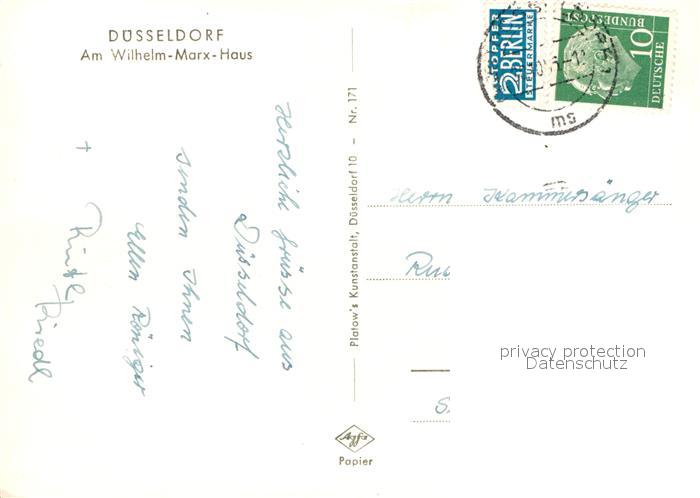 DÜSSELDORF
Am Wilhelm-Marx-Haus
Herzliche Grüsse aus
Düsseldorf
senden Ihnen
Ellen
+
Riedl
Platow's Kunstanstalt, Düsseldorf 10 – Nr. 171
Agfa
Papier
NOTOPFER
2 BERLIN
STEUERMARKE
10
BUNDESPOST
DEUTSCHE
Herrn Kammersänger
privacy protection
Datenschutz